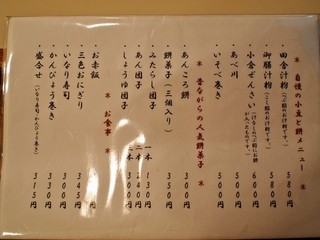 * 自慢の小豆と餅メニュー *
・田舎汁粉 580円
(つぶ餡のお汁粉です。)
・御膳汁粉 580円
(こし餡のお汁粉です。)
・小倉ぜんざい 600円
・あべ川 500円
・いそべ巻き 500円
* 昔ながらの人気餅菓子 *
・あんころ餅 350円
・餅菓子(三個入り) 300円
・みたらし団子 一本 130円
・あん団子 二本 240円
・しょうゆ団子 三本 300円
* お食事 *
・お赤飯
・三色おにぎり 345円
・いなり寿司 300円
・かんぴょう巻き 330円
・盛合せ 315円
(いなり寿司・かんぴょう巻き)